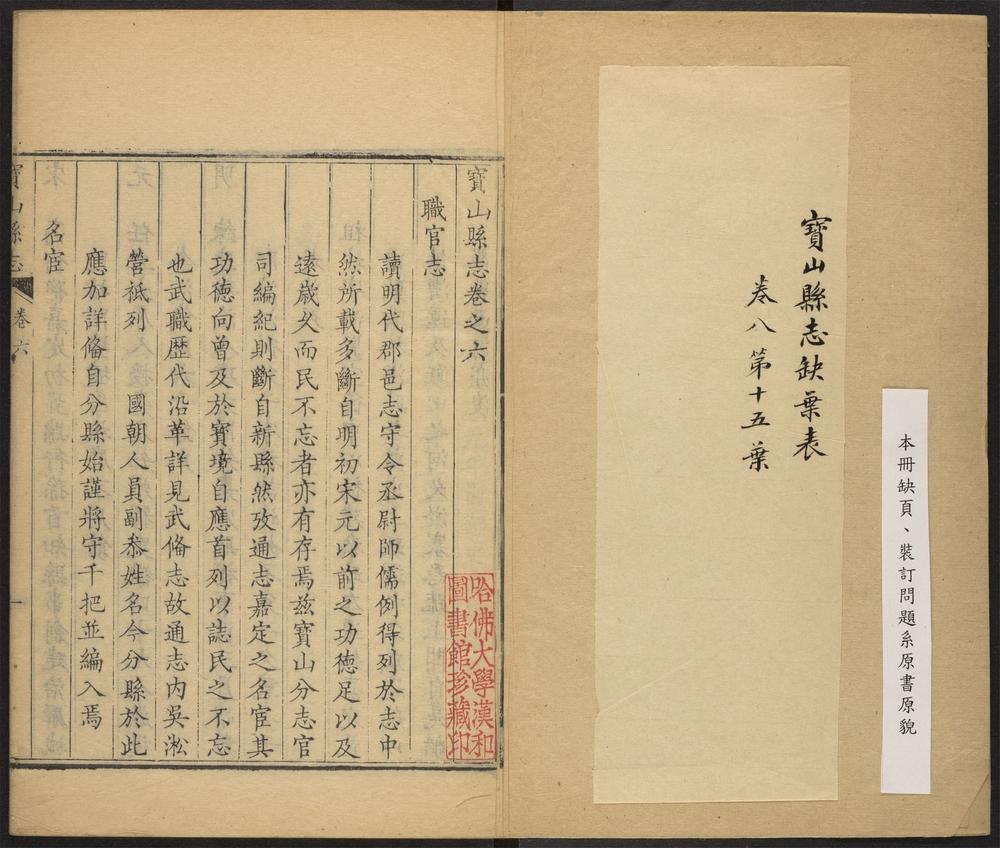 本冊缺頁、裝訂問題系原書原貌
寶山縣志缺葉表
卷八第十五葉
寶山縣志卷之六
職官志
讀明代郡邑志守令丞尉師儒例得列於志中
然所載多斷自明初宋元以前之功德足以及
遠歲久而民不忘者亦有存焉兹寶山分志官
司編紀則斷自新縣然攷通志嘉定之名宦其
功德向曾及於寶境自應首列以誌民之不忘
也武職歷代沿革詳見武俻志故通志内吳淞
營祇列國朝人員副叅姓名今分縣於此
應加詳俻自分縣始謹將守千把並編入焉
名宦
寶山縣志
卷六
一
哈佛大學漢和
圖書館珍藏印